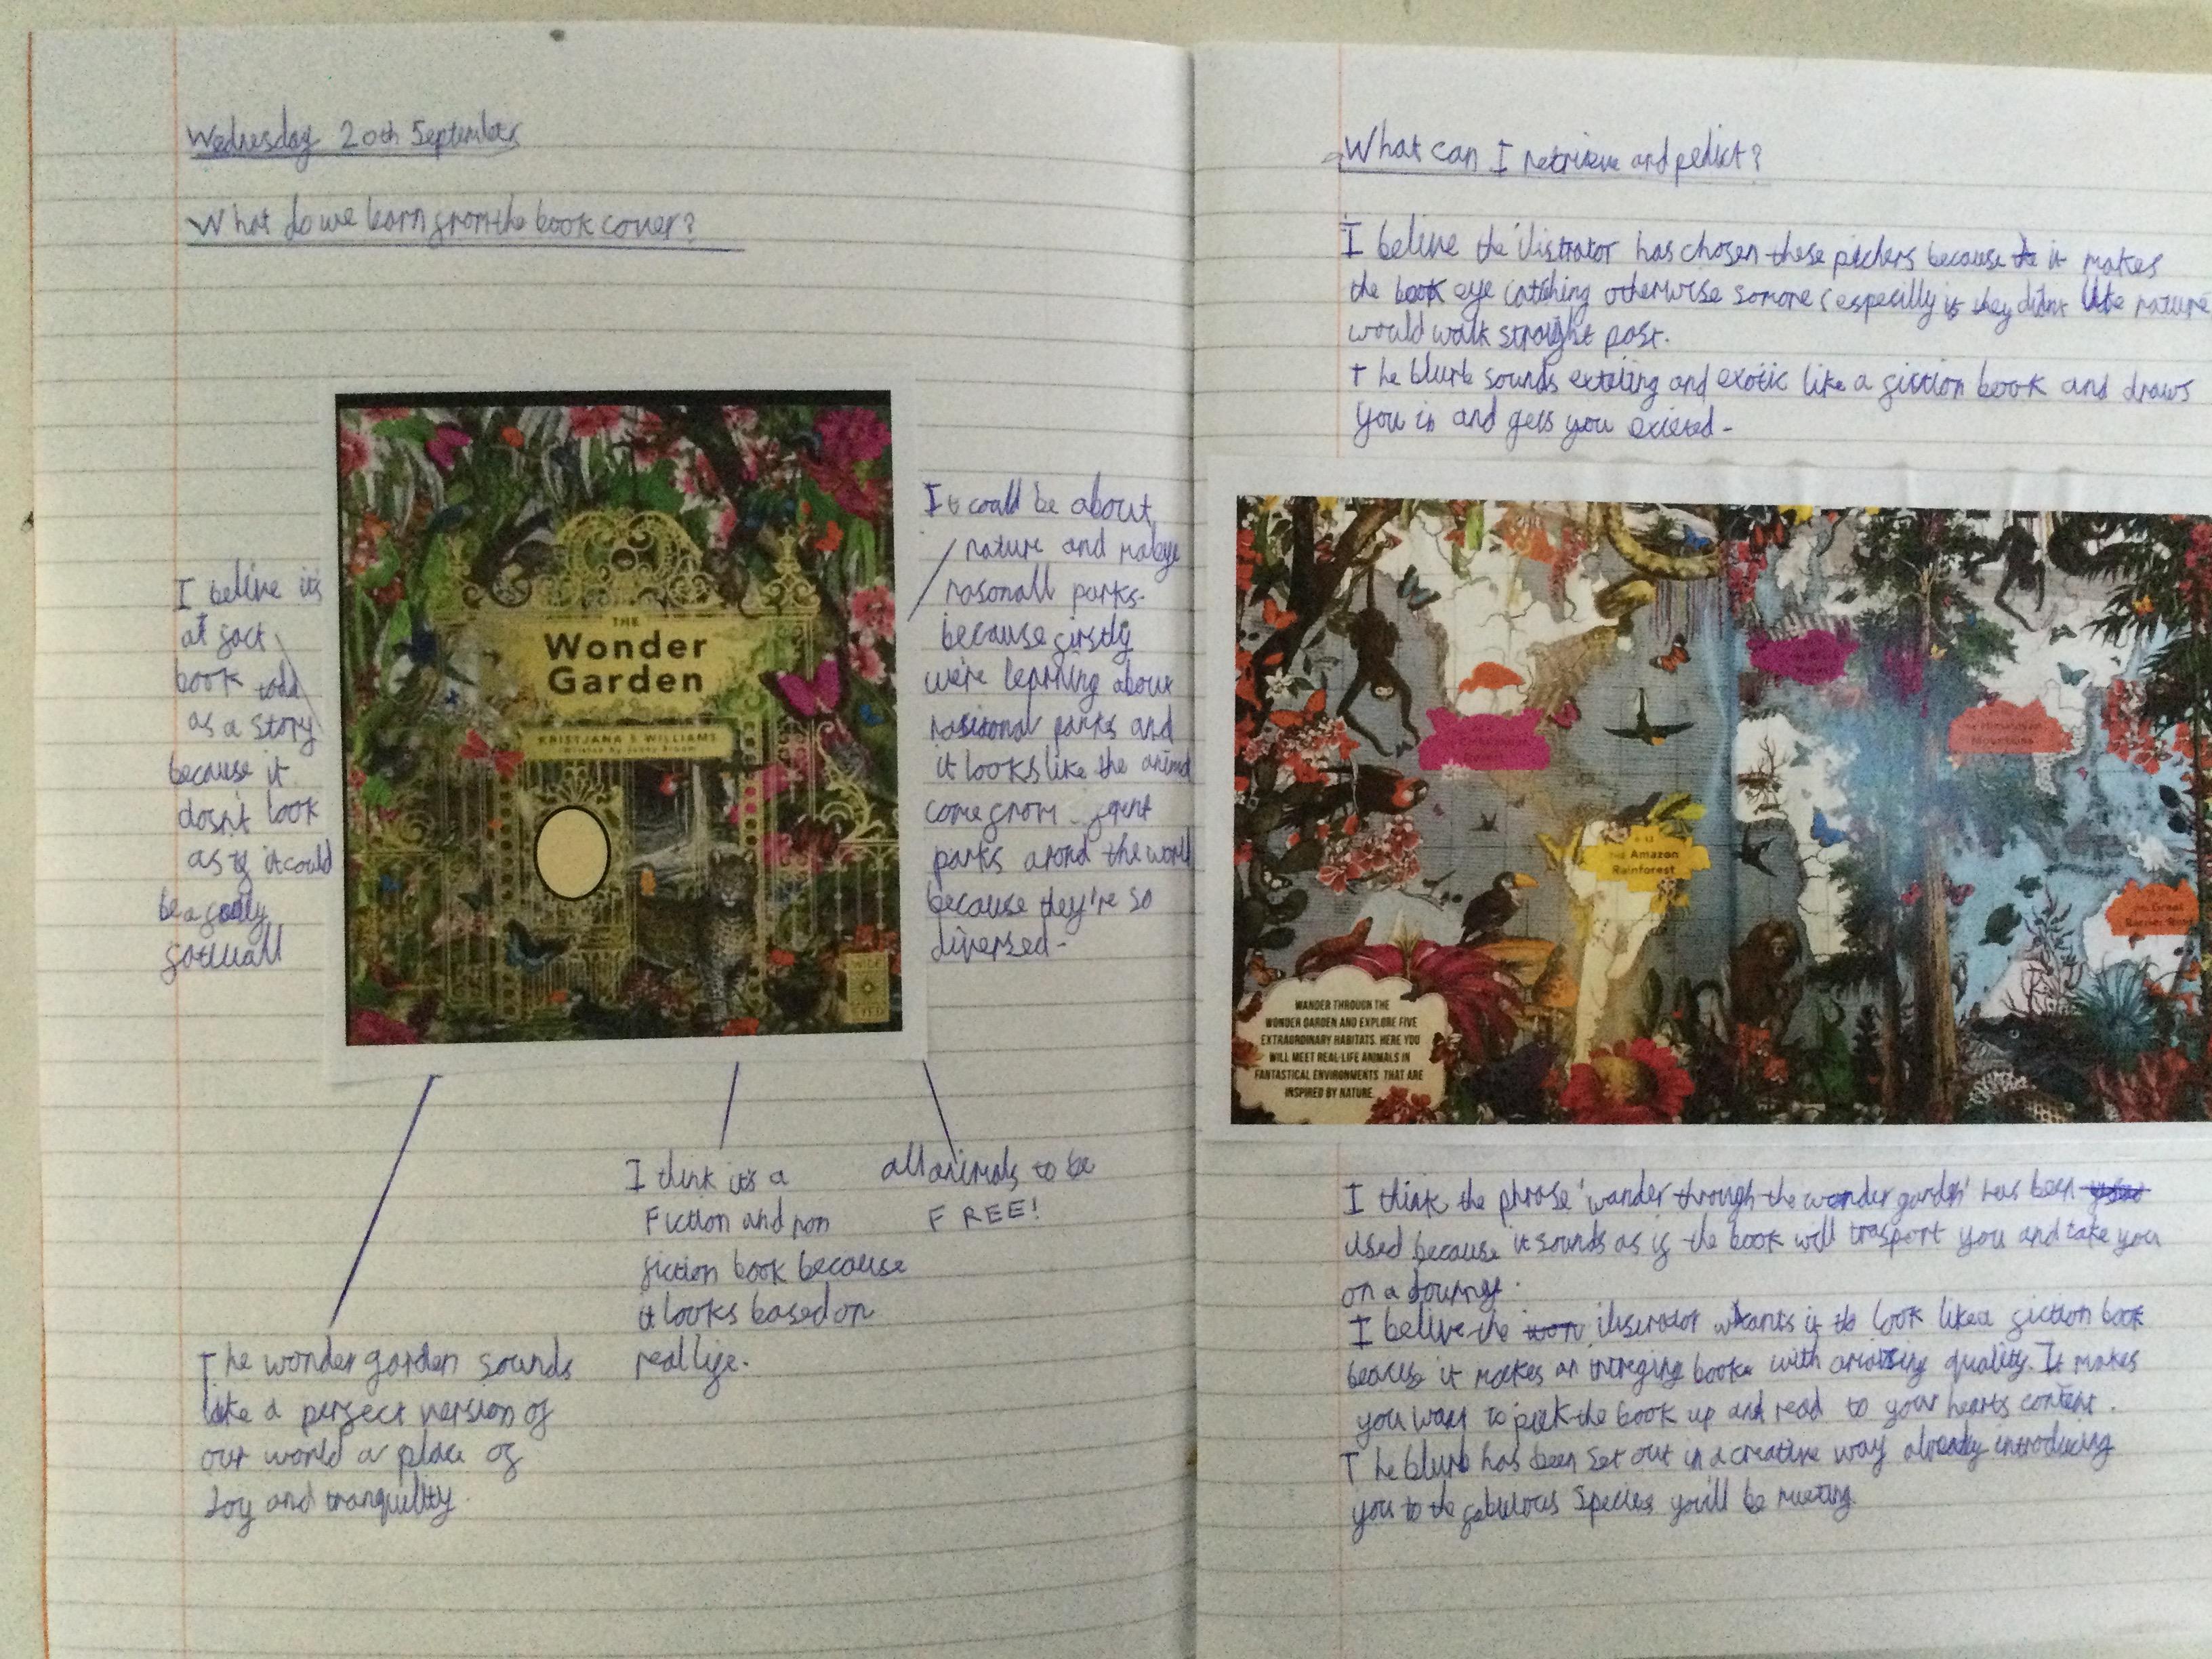 Wednesday 20th September
What do we learn from the book cover?
I belive it's
a fact
book told
as a story
because it
dosn't look
as if it could
be a
THE
Wonder
Garden
KRISTJANA S WILLIAMS
Written by Jenny Broom
WIDE
EYED
It could be about
nature and
nasonall parks.
because firstly
we're learning about
nasional parks and
it looks like the animal
come from
parks arond the world
because they're so
diversed.
I think it's a
Fiction and non
fiction book because
it looks based on
real life.
all animals to be
FREE!
The wonder garden sounds
like a perfect version of
our world a place of
Joy and tranquility.
What can I retrieve and pedict?
I belive the ilistrator has chosen these pichers because it makes
the book eye catching otherwise somone (especilly if they didnt like nature
would walk straight past.
The blurb sounds and exotic like a fiction book and draws
you in and gets you exieted.
THE Amazon
Rainforest
THE Himalayan
Mountains
THE Great
Barrier Reef
WANDER THROUGH THE
WONDER GARDEN AND EXPLORE FIVE
EXTRAORDINARY HABITATS. HERE YOU
WILL MEET REAL-LIFE ANIMALS IN
FANTASTICAL ENVIRONMENTS THAT ARE
INSPIRED BY NATURE.
I think the phrase 'wander through the wonder garden' has been
used because it sounds as if the book will trasport you and take you
on a
I belive the wants it to look like a fiction book
it makes an book with quality. It makes
you want to pick the book up and read to your hearts content.
The blurb has been set out in a creative way already introducing
you to the fabulous species you'll be meeting.